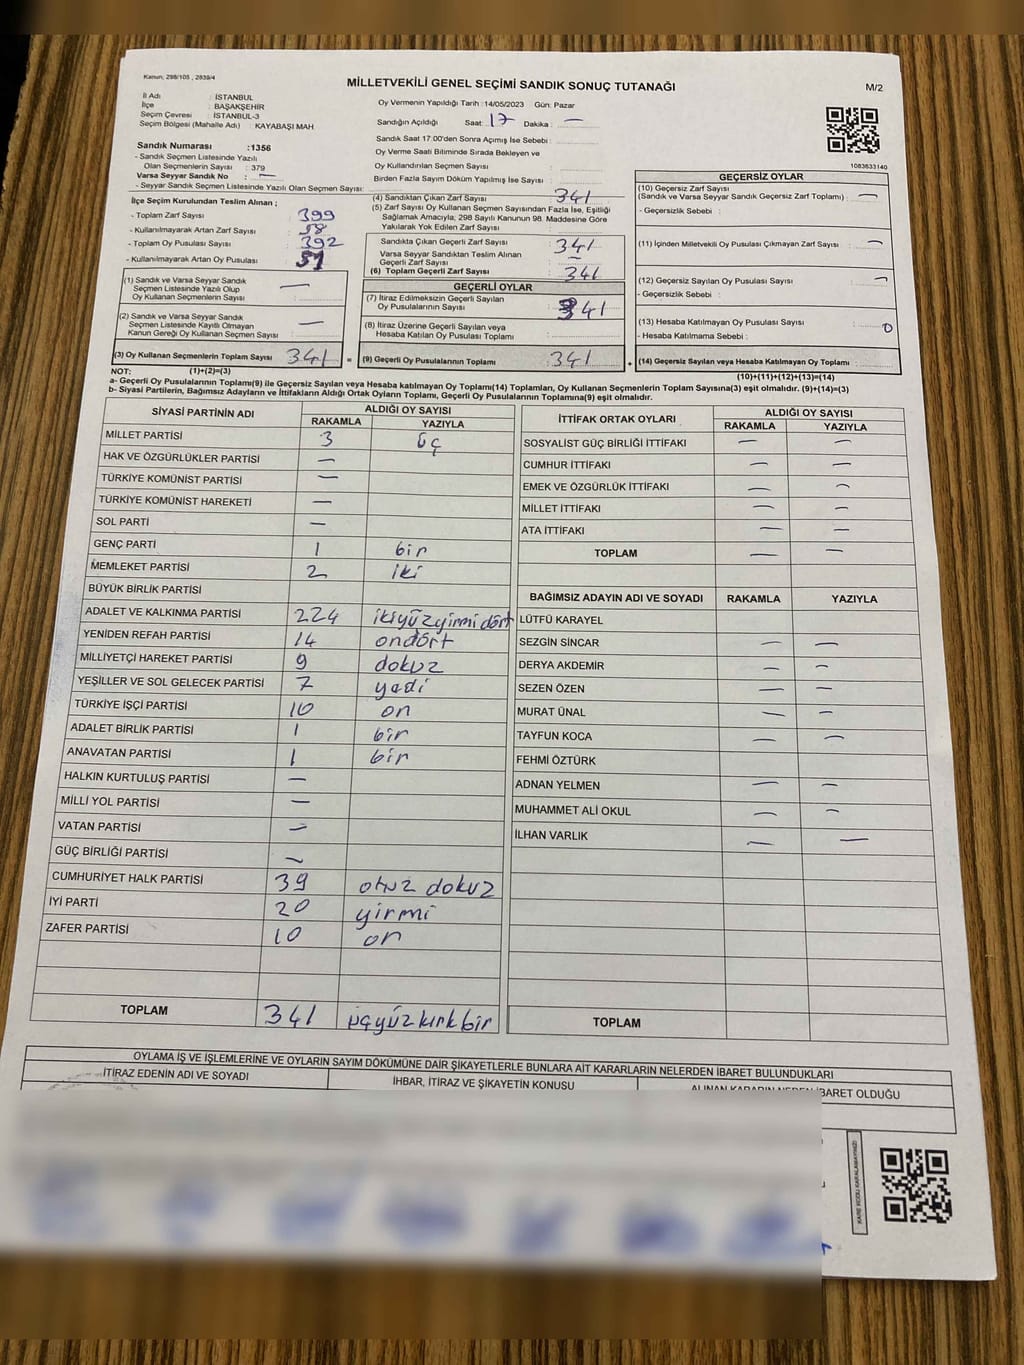 Kanun; 298/105 , 2839/4
MİLLETVEKİLİ GENEL SEÇİMİ SANDIK SONUÇ TUTANAĞI
M/2
İl Adı : İSTANBUL
İlçe : BAŞAKŞEHİR
Seçim Çevresi : İSTANBUL-3
Seçim Bölgesi (Mahalle Adı) : KAYABAŞI MAH
Sandık Numarası :1356
- Sandık Seçmen Listesinde Yazılı
Olan Seçmenlerin Sayısı : 379
Varsa Seyyar Sandık No : —
- Seyyar Sandık Seçmen Listesinde Yazılı Olan Seçmen Sayısı:
İlçe Seçim Kurulundan Teslim Alınan ;
- Toplam Zarf Sayısı : 399
- Kullanılmayarak Artan Zarf Sayısı : 58
- Toplam Oy Pusulası Sayısı : 392
- Kullanılmayarak Artan Oy Pusulası : 51
(1) Sandık ve Varsa Seyyar Sandık
Seçmen Listesinde Yazılı Olup
Oy Kullanan Seçmenlerin Sayısı : —
(2) Sandık ve Varsa Seyyar Sandık
Seçmen Listesinde Kayıtlı Olmayan
Kanun Gereği Oy Kullanan Seçmen Sayısı : —
(3) Oy Kullanan Seçmenlerin Toplam Sayısı : 341 =
Oy Vermenin Yapıldığı Tarih :14/05/2023 Gün: Pazar
Sandığın Açıldığı Saat: 17 Dakika : —
Sandık Saat 17:00'den Sonra Açımış İse Sebebi :
Oy Verme Saati Bitiminde Sırada Bekleyen ve
Oy Kullandırılan Seçmen Sayısı :
Birden Fazla Sayım Döküm Yapılmış İse Sayısı :
(4) Sandıktan Çıkan Zarf Sayısı : 341
(5) Zarf Sayısı Oy Kullanan Seçmen Sayısından Fazla İse, Eşitliği
Sağlamak Amacıyla, 298 Sayılı Kanunun 98. Maddesine Göre
Yakılarak Yok Edilen Zarf Sayısı :
Sandıkta Çıkan Geçerli Zarf Sayısı : 341
Varsa Seyyar Sandıktan Teslim Alınan
Geçerli Zarf Sayısı : —
(6) Toplam Geçerli Zarf Sayısı : 341
GEÇERLİ OYLAR
(7) İtiraz Edilmeksizin Geçerli Sayılan
Oy Pusulalarının Sayısı : 341
(8) İtiraz Üzerine Geçerli Sayılan veya
Hesaba Katılan Oy Pusulaları Toplamı :
(9) Geçerli Oy Pusulalarının Toplamı : 341 +
1083633140
GEÇERSİZ OYLAR
(10) Geçersiz Zarf Sayısı
(Sandık ve Varsa Seyyar Sandık Geçersiz Zarf Toplamı) : —
- Geçersizlik Sebebi :
(11) İçinden Milletvekili Oy Pusulası Çıkmayan Zarf Sayısı : —
(12) Geçersiz Sayılan Oy Pusulası Sayısı : —
- Geçersizlik Sebebi :
(13) Hesaba Katılmayan Oy Pusulası Sayısı : 0
- Hesaba Katılmama Sebebi :
(14) Geçersiz Sayılan veya Hesaba Katılmayan Oy Toplamı :
NOT: (1)+(2)=(3) (10)+(11)+(12)+(13)=(14)
a- Geçerli Oy Pusulalarının Toplamı(9) ile Geçersiz Sayılan veya Hesaba katılmayan Oy Toplamı(14) Toplamları, Oy Kullanan Seçmenlerin Toplam Sayısına(3) eşit olmalıdır. (9)+(14)=(3)
b- Siyasi Partilerin, Bağımsız Adayların ve İttifakların Aldığı Ortak Oyların Toplamı, Geçerli Oy Pusulalarının Toplamına(9) eşit olmalıdır.
SİYASİ PARTİNİN ADI ALDIĞI OY SAYISI
RAKAMLA YAZIYLA
MİLLET PARTİSİ 3 üç
HAK VE ÖZGÜRLÜKLER PARTİSİ —
TÜRKİYE KOMÜNİST PARTİSİ —
TÜRKİYE KOMÜNİST HAREKETİ —
SOL PARTİ —
GENÇ PARTİ 1 bir
MEMLEKET PARTİSİ 2 iki
BÜYÜK BİRLİK PARTİSİ
ADALET VE KALKINMA PARTİSİ 224 ikiyüzyirmidört
YENİDEN REFAH PARTİSİ 14 ondört
MİLLİYETÇİ HAREKET PARTİSİ 9 dokuz
YEŞİLLER VE SOL GELECEK PARTİSİ 7 yedi
TÜRKİYE İŞÇİ PARTİSİ 10 on
ADALET BİRLİK PARTİSİ 1 bir
ANAVATAN PARTİSİ 1 bir
HALKIN KURTULUŞ PARTİSİ —
MİLLİ YOL PARTİSİ —
VATAN PARTİSİ —
GÜÇ BİRLİĞİ PARTİSİ —
CUMHURİYET HALK PARTİSİ 39 otuz dokuz
İYİ PARTİ 20 yirmi
ZAFER PARTİSİ 10 on
TOPLAM 341 üçyüzkırkbir
İTTİFAK ORTAK OYLARI ALDIĞI OY SAYISI
RAKAMLA YAZIYLA
SOSYALİST GÜÇ BİRLİĞİ İTTİFAKI — —
CUMHUR İTTİFAKI — —
EMEK VE ÖZGÜRLÜK İTTİFAKI — —
MİLLET İTTİFAKI — —
ATA İTTİFAKI — —
TOPLAM — —
BAĞIMSIZ ADAYIN ADI VE SOYADI RAKAMLA YAZIYLA
LÜTFÜ KARAYEL
SEZGİN SİNCAR — —
DERYA AKDEMİR — —
SEZEN ÖZEN — —
MURAT ÜNAL — —
TAYFUN KOCA — —
FEHMİ ÖZTÜRK
ADNAN YELMEN — —
MUHAMMET ALİ OKUL — —
İLHAN VARLIK — —
TOPLAM
OYLAMA İŞ VE İŞLEMLERİNE VE OYLARIN SAYIM DÖKÜMÜNE DAİR ŞİKAYETLERLE BUNLARA AİT KARARLARIN NELERDEN İBARET BULUNDUKLARI
İTİRAZ EDENİN ADI VE SOYADI İHBAR, İTİRAZ VE ŞİKAYETİN KONUSU ALINAN KARARIN NEDEN İBARET OLDUĞU
KARE KODU KARALAMAYINIZ!